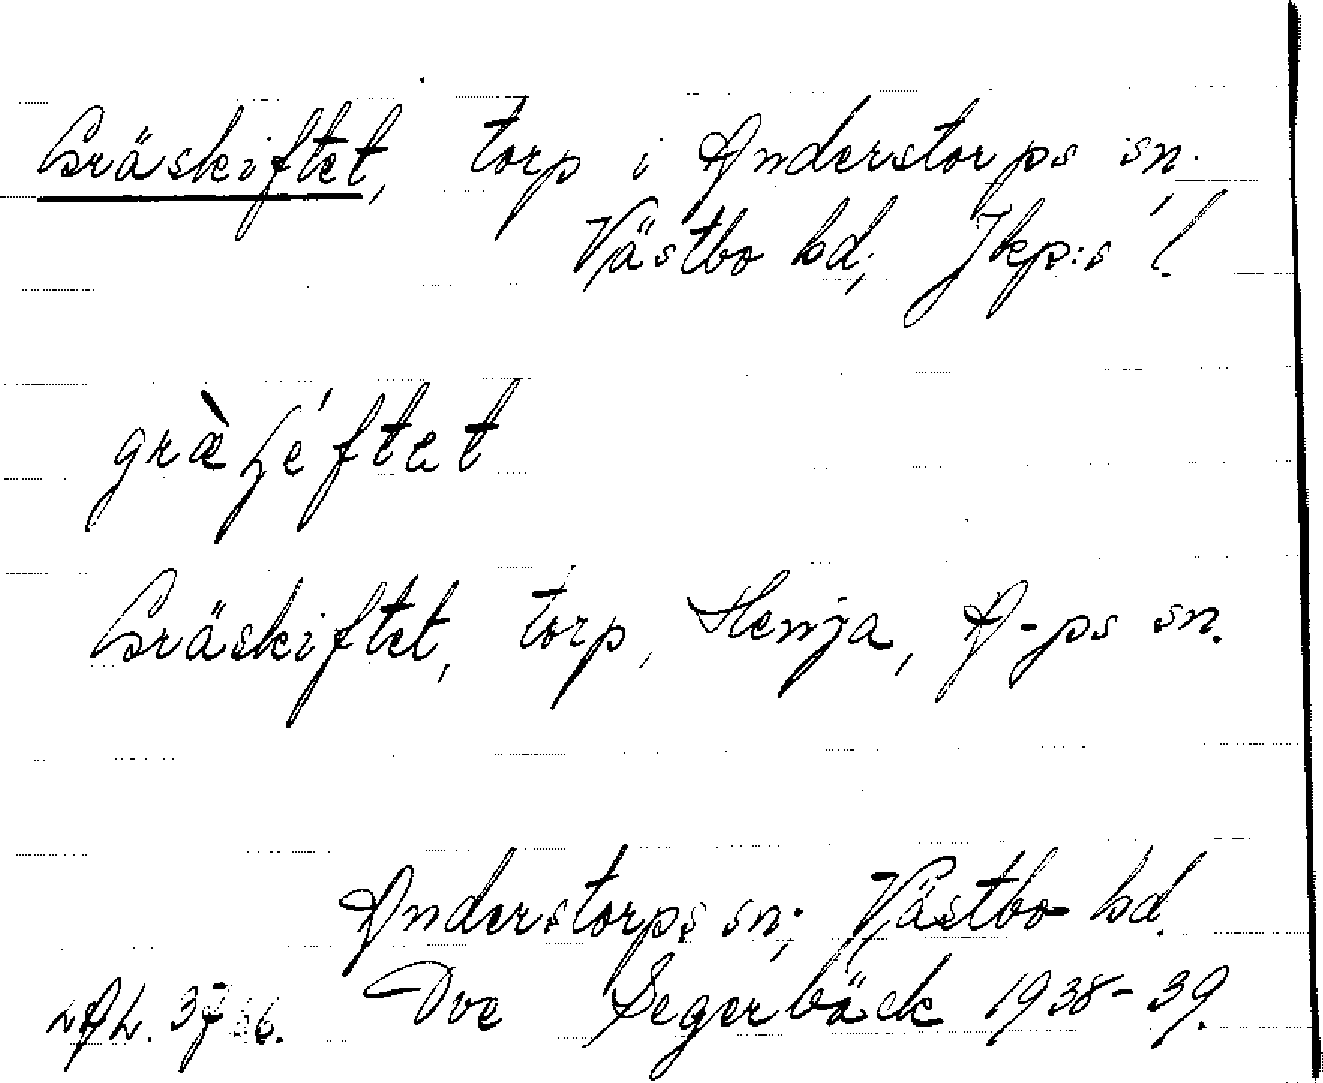 Gräskiftet, torp i Anderstorps sn.,
Västbo hd; Jkp:s l.
Gräskiftet, torp, Henja, A-ps sn.
Anderstorps sn; Västbo hd.
Ove Segerbäck 1938-39.